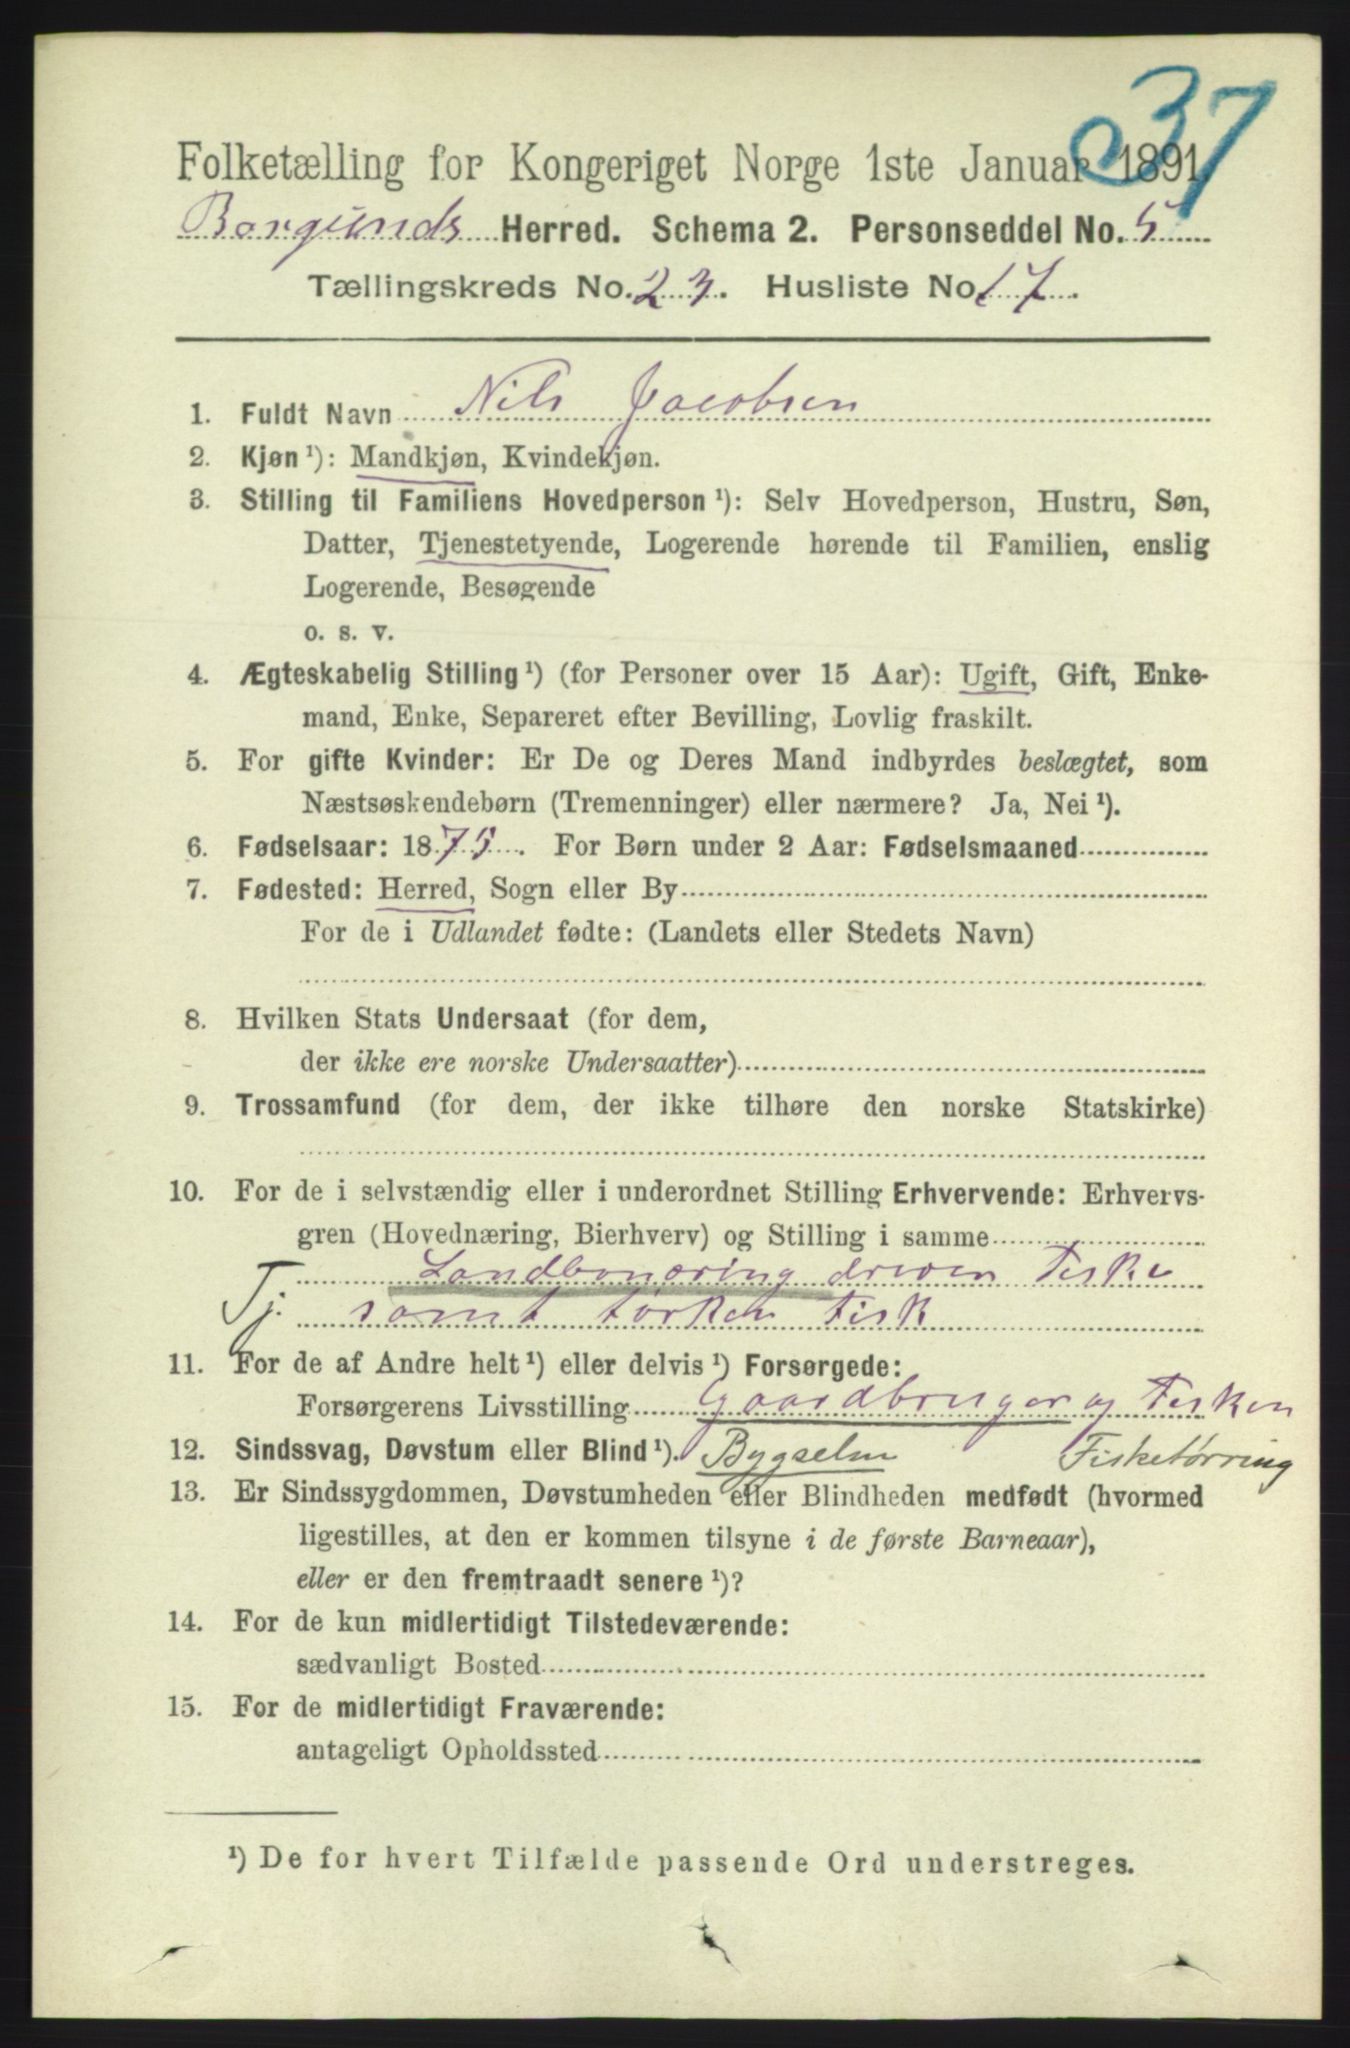 37
Folketælling for Kongeriget Norge 1ste Januar 1891
Borgunds Herred. Schema 2. Personseddel No. 5
Tællingskreds No. 23. Husliste No. 17.
1. Fuldt Navn Nils Jacobsen
2. Kjøn ¹): Mandkjøn, Kvindekjøn.
3. Stilling til Familiens Hovedperson ¹): Selv Hovedperson, Hustru, Søn,
Datter, Tjenestetyende, Logerende hørende til Familien, enslig
Logerende, Besøgende
o. s. v.
4. Ægteskabelig Stilling ¹) (for Personer over 15 Aar): Ugift, Gift, Enke-
mand, Enke, Separeret efter Bevilling, Lovlig fraskilt.
5. For gifte Kvinder: Er De og Deres Mand indbyrdes beslægtet, som
Næstsøskendebørn (Tremenninger) eller nærmere? Ja, Nei ¹).
6. Fødselsaar: 1875. For Børn under 2 Aar: Fødselsmaaned
7. Fødested: Herred, Sogn eller By
For de i Udlandet fødte: (Landets eller Stedets Navn)
8. Hvilken Stats Undersaat (for dem,
der ikke ere norske Undersaatter)
9. Trossamfund (for dem, der ikke tilhøre den norske Statskirke)
10. For de i selvstændig eller i underordnet Stilling Erhvervende: Erhvervs-
gren (Hovednæring, Bierhverv) og Stilling i samme
Landbonæring driven Fiske
Tj. samt tørken Fisk
11. For de af Andre helt ¹) eller delvis ¹) Forsørgede:
Forsørgerens Livsstilling Gaardbruger og Fisken
12. Sindssvag, Døvstum eller Blind ¹). Bygselm Fisketørring
13. Er Sindssygdommen, Døvstumheden eller Blindheden medfødt (hvormed
ligestilles, at den er kommen tilsyne i de første Barneaar),
eller er den fremtraadt senere ¹)?
14. For de kun midlertidigt Tilstedeværende:
sædvanligt Bosted
15. For de midlertidigt Fraværende:
antageligt Opholdssted
¹) De for hvert Tilfælde passende Ord understreges.